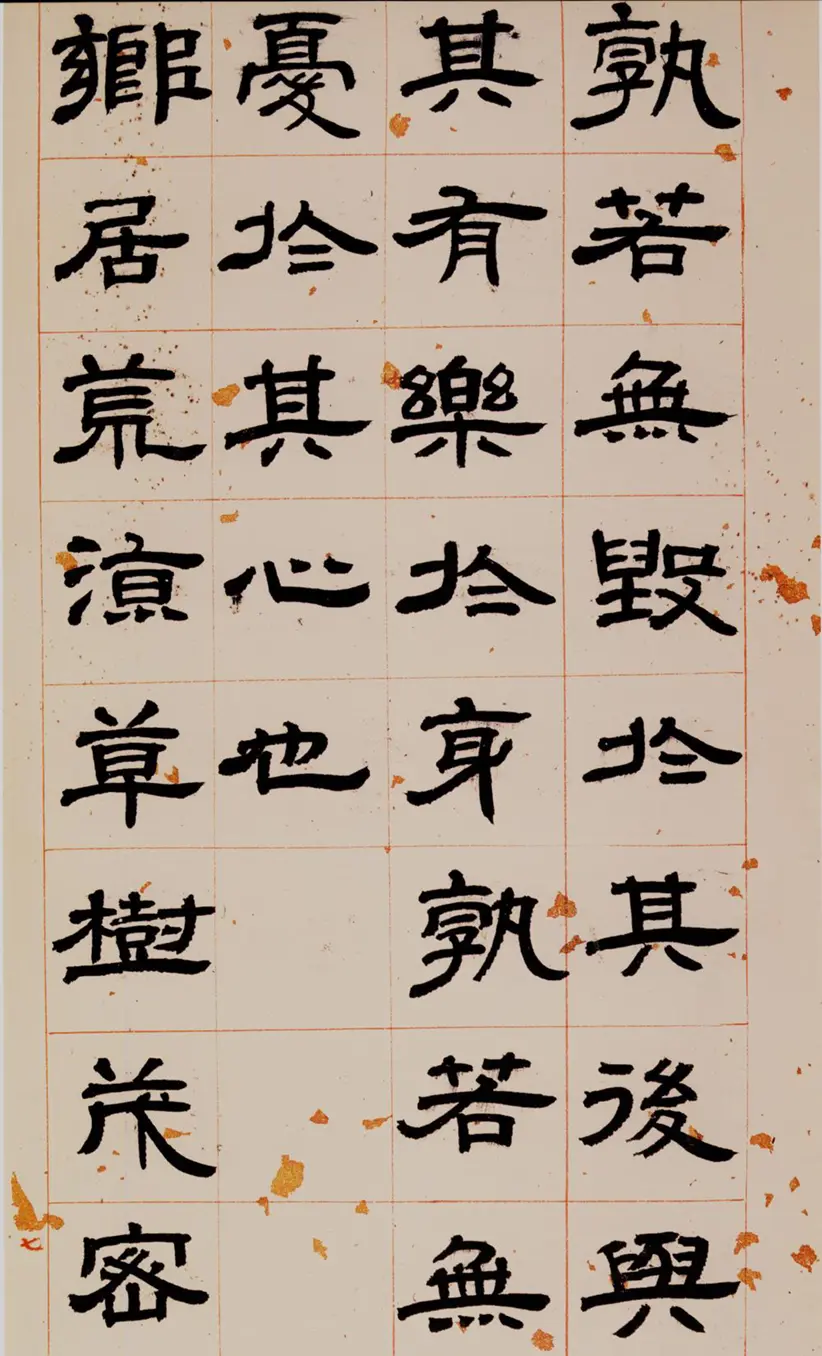 孰若無毀於其後與
其有樂於身孰若無
憂於其心也
鄉居荒涼草樹茂密
七